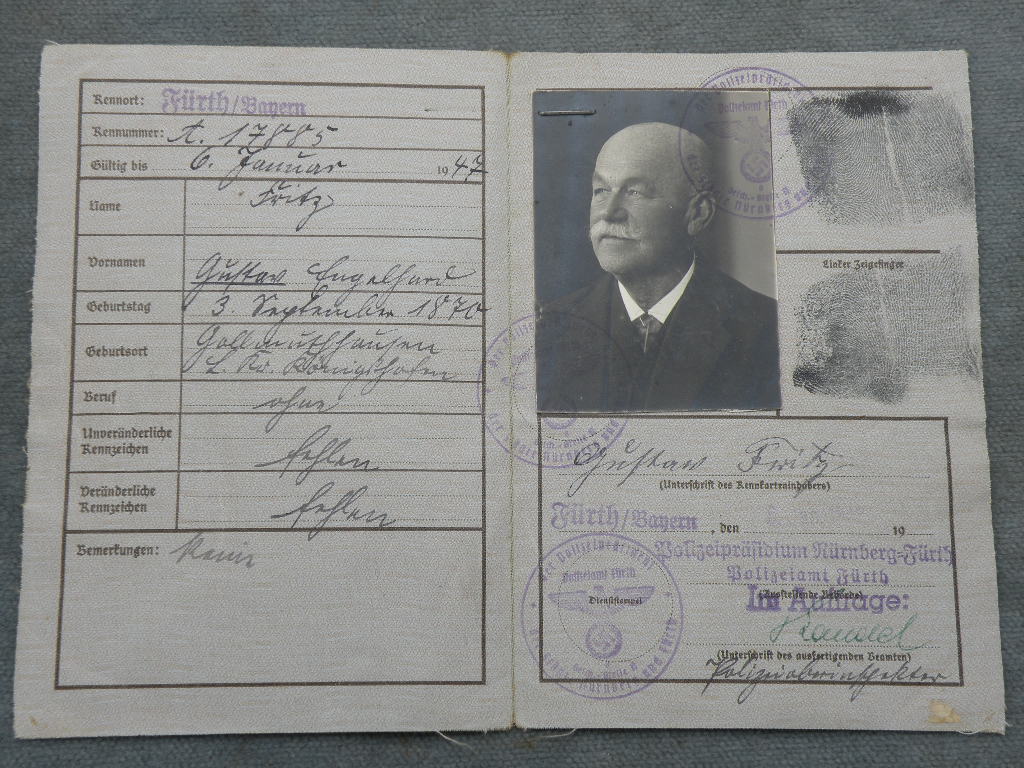 Kennort: Fürth/Bayern
Kennummer: A. 17885
Gültig bis 6. Januar 1947
Name Fritz
Vornamen Gustav Engelhard
Geburtstag 3. September 1870
Geburtsort Gollmuthhausen
L. Kr. Königshofen
Beruf ohne
Unveränderliche
Kennzeichen fehlen
Veränderliche
Kennzeichen fehlen
Bemerkungen: Keine
Der Polizeipräsident
Polizeiamt Fürth
Linker Zeigefinger
Gustav Fritz
(Unterschrift des Kennkarteninhabers)
Fürth/Bayern, den 19
Polizeipräsidium Nürnberg-Fürth
Polizeiamt Fürth
(Ausstellende Behörde)
Im Auftrage:
(Unterschrift des ausfertigenden Beamten)
Polizeioberinspektor
Der Polizeipräsident
Polizeiamt Fürth
Dienststempel
der Städte Nürnberg und Fürth